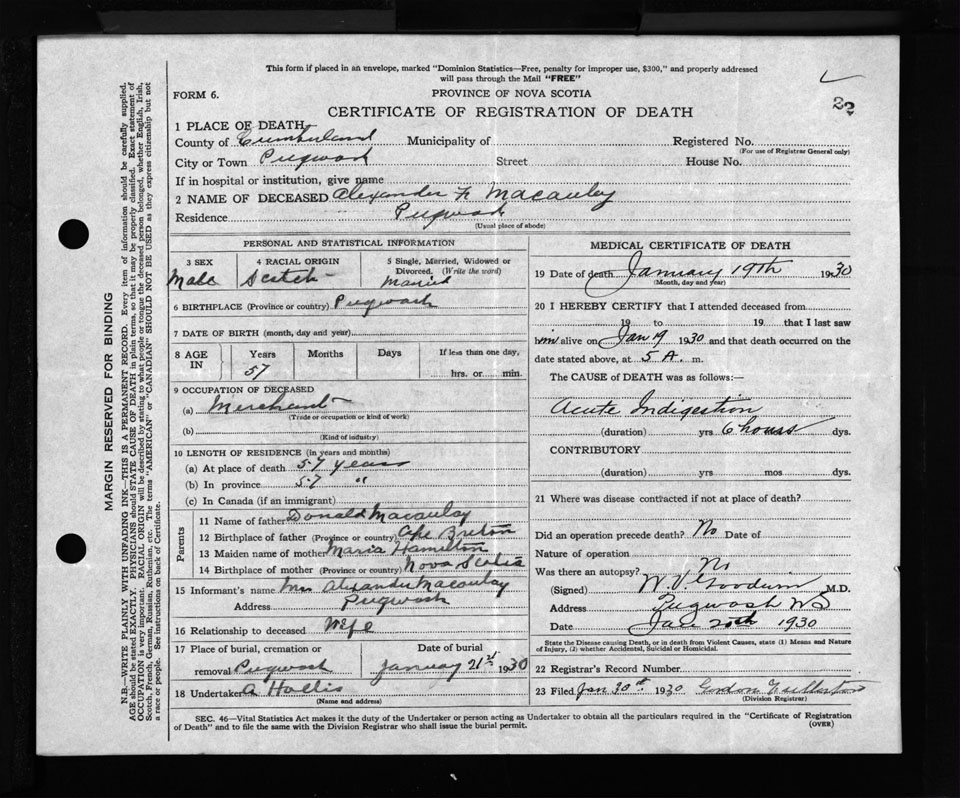 This form if placed in an envelope, marked "Dominion Statistics—Free, penalty for improper use, $300," and properly addressed
will pass through the Mail "FREE"
FORM 6.
PROVINCE OF NOVA SCOTIA
22
CERTIFICATE OF REGISTRATION OF DEATH
1 PLACE OF DEATH
County of Cumberland Municipality of Registered No.
(For use of Registrar General only)
City or Town Pugwash Street House No.
If in hospital or institution, give name
2 NAME OF DECEASED Alexander Macaulay
Residence Pugwash
(Usual place of abode)
PERSONAL AND STATISTICAL INFORMATION
3 SEX Male
4 RACIAL ORIGIN Scotch
5 Single, Married, Widowed or
Divorced. (Write the word)
Married
6 BIRTHPLACE (Province or country) Pugwash
7 DATE OF BIRTH (month, day and year)
8 AGE IN Years 57 Months Days If less than one day,
hrs. or min.
9 OCCUPATION OF DECEASED
(a) Merchant
(Trade or occupation or kind of work)
(b)
(Kind of industry)
10 LENGTH OF RESIDENCE (in years and months)
(a) At place of death 57 years
(b) In province 57 "
(c) In Canada (if an immigrant)
Parents
11 Name of father Donald Macaulay
12 Birthplace of father (Province or country) Cape Breton
13 Maiden name of mother Maria Hamilton
14 Birthplace of mother (Province or country) Nova Scotia
15 Informant's name Mrs Alexander Macaulay
Address Pugwash
16 Relationship to deceased Wife
17 Place of burial, cremation or
removal Pugwash
Date of burial
January 21st 1930
18 Undertaker A Hollis
(Name and address)
MEDICAL CERTIFICATE OF DEATH
19 Date of death January 19th 1930
(Month, day and year)
20 I HEREBY CERTIFY that I attended deceased from
19 to 19 that I last saw
him alive on Jan 19 1930 and that death occurred on the
date stated above, at 5 A. m.
The CAUSE of DEATH was as follows:—
Acute Indigestion
(duration) yrs 6 hours dys.
CONTRIBUTORY
(duration) yrs mos dys.
21 Where was disease contracted if not at place of death?
Did an operation precede death? No Date of
Nature of operation
Was there an autopsy? No
(Signed) W. V. Goodwin M.D.
Address Pugwash NS
Date Jan 20th 1930
State the Disease causing Death, or in death from Violent Causes, state (1) Means and Nature
of Injury, (2) whether Accidental, Suicidal or Homicidal.
22 Registrar's Record Number
23 Filed Jan 30th 1930 Gordon Fullerton
(Division Registrar)
SEC. 46—Vital Statistics Act makes it the duty of the Undertaker or person acting as Undertaker to obtain all the particulars required in the "Certificate of Registration
of Death" and to file the same with the Division Registrar who shall issue the burial permit.
(OVER)
MARGIN RESERVED FOR BINDING
N.B.—WRITE PLAINLY WITH UNFADING INK—THIS IS A PERMANENT RECORD. Every item of information should be carefully supplied.
AGE should be stated EXACTLY. PHYSICIANS should STATE CAUSE OF DEATH in plain terms, so that it may be properly classified. Exact statement of
OCCUPATION is very important. RACIAL ORIGIN will be described by stating to what people or tongue the deceased person belonged, whether English, Irish,
Scotch, French, German, Russian, Ruthenian, etc. The terms "AMERICAN" or "CANADIAN" SHOULD NOT BE USED as they express citizenship but not
a race or people. See instructions on back of Certificate.